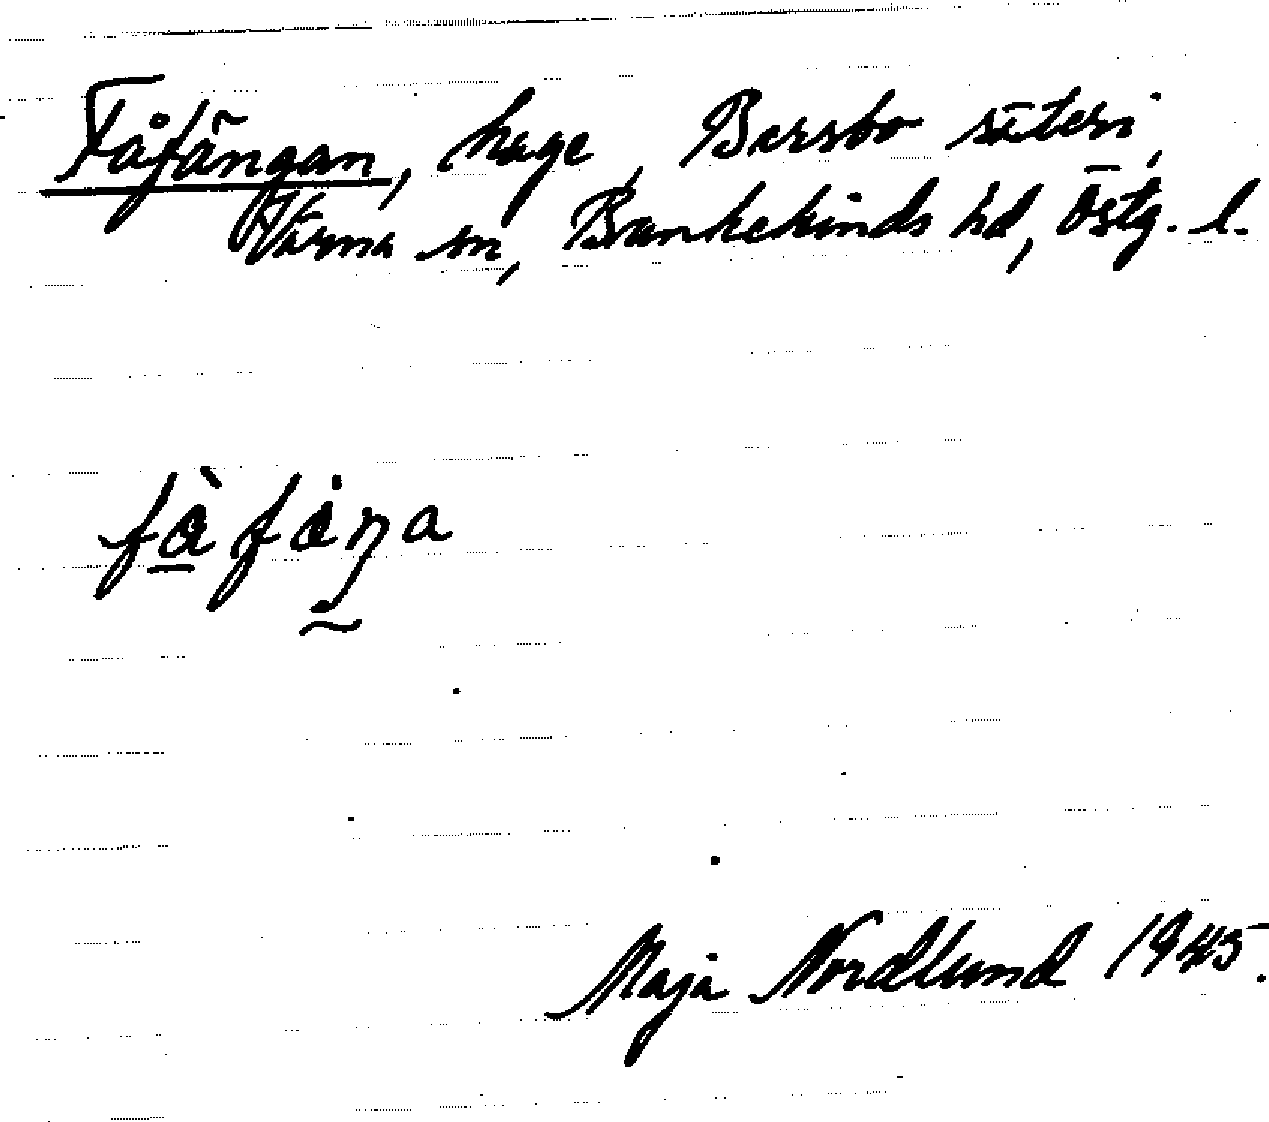 Fåfängan, hage, Bersbo säteri,
Värna sn, Bankekinds hd, Östg. l.
fåfäŋa
Maja Nordlund 1945.